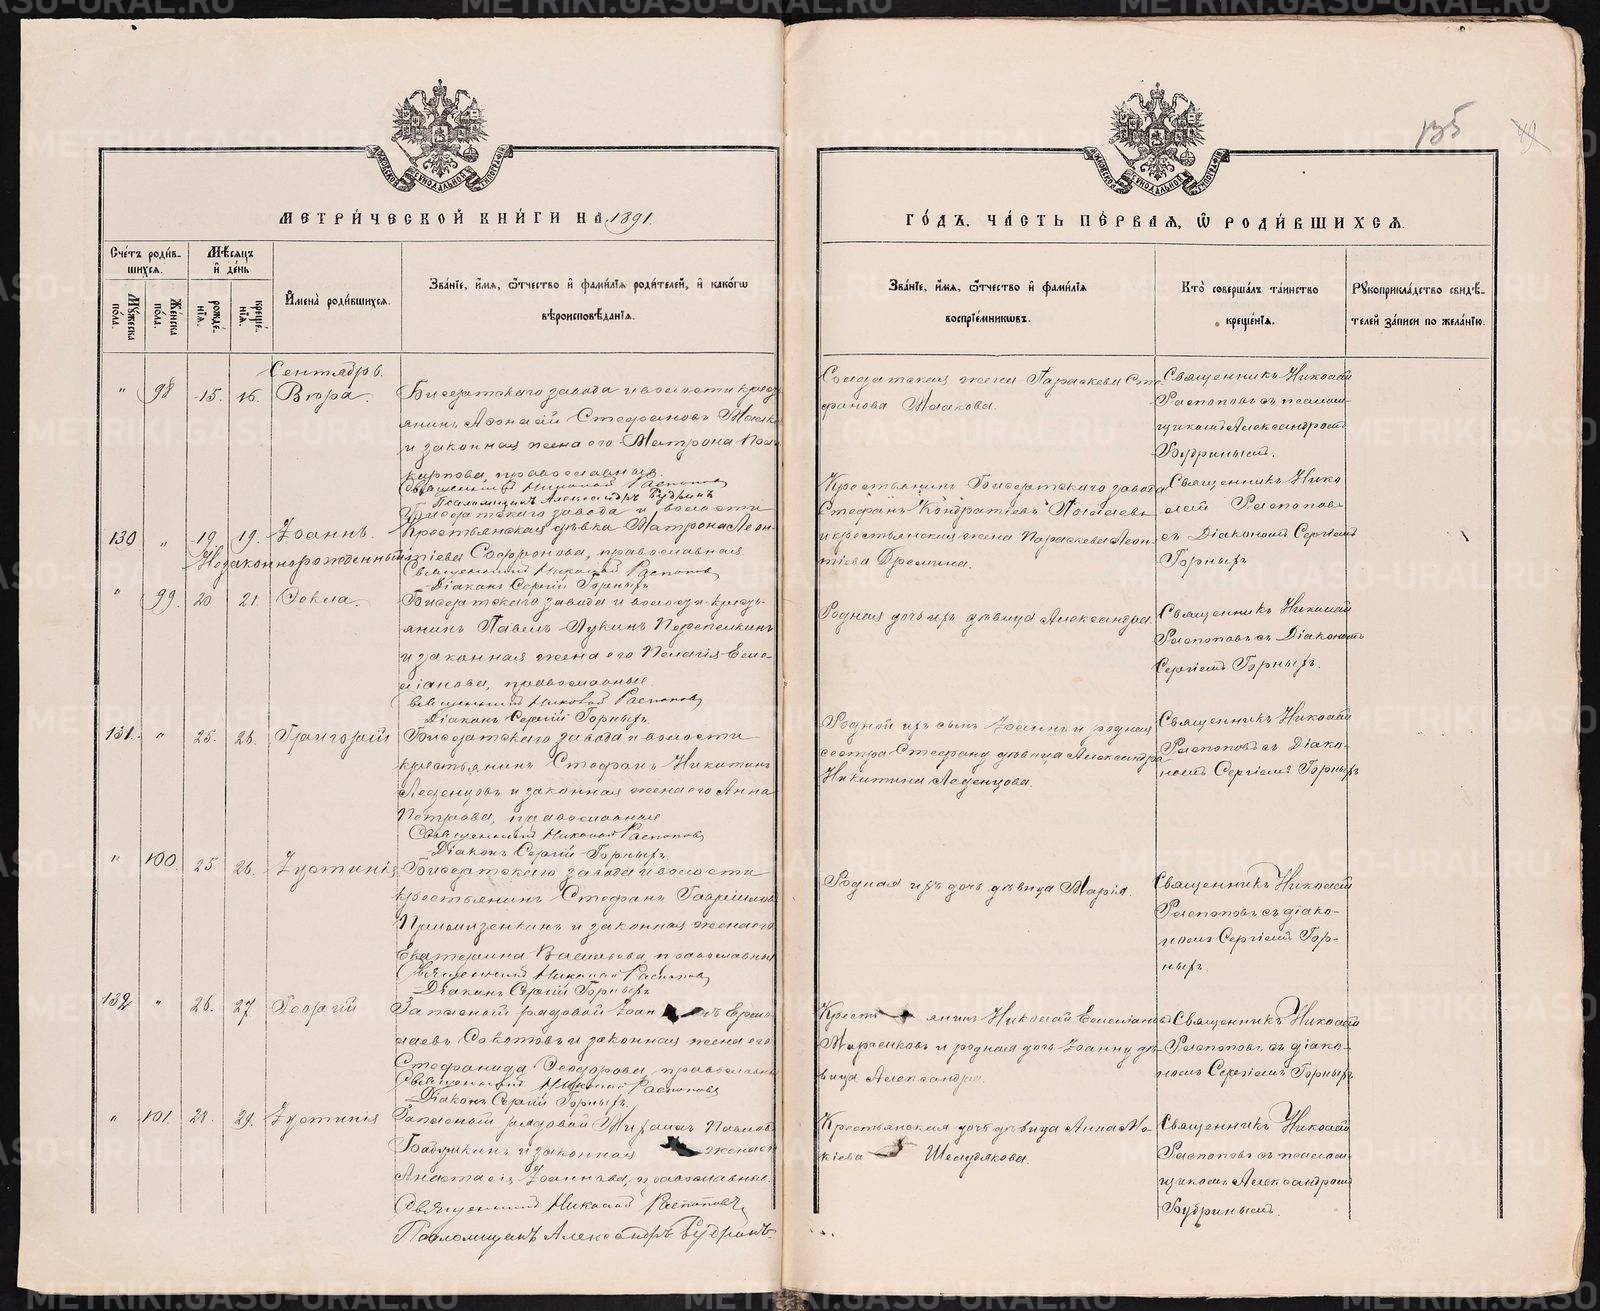 МЕТРИ́ЧЕСКОЙ КНИ́ГИ НА 1891
Сче́тъ роди́в-
шихся.
Мѣ́сяцъ
и҆ де́нь
Му́жеска
по́ла.
Же́нска
по́ла.
рожде́-
нїя.
креще́-
нїя.
И҆мена̀ роди́вшихся.
Зва́нїе, и҆́мя, ѻ҆́тчество и҆ фами́лїя роди́телей, и҆ како́гѡ
вѣроисповѣ́данїя.
Сентябрь.
" 98 15. 16. Вѣра.
Бисертскаго завода и волости кресть-
янинъ Стефановъ
и законная жена его Матрона Поли-
карпова, православные.
Священникъ Николай Распоповъ
Псаломщикъ Александръ Будринъ
130 " 19 19. Іоаннъ.
Незаконнорожденный
Бисертскаго завода и волости
Крестьянская дѣвка Матрона Леон-
тіева Софронова, православная.
Священникъ Николай Распоповъ
Діаконъ Сергій Горныхъ
" 99. 20 21. Ѳекла.
Бисертскаго завода и волости кресть-
янинъ Павелъ Лукинъ Перепелкинъ
и законная жена его Пелагія Еме-
ліанова, православные.
Священникъ Николай Распоповъ
Діаконъ Сергій Горныхъ
131. " 25. 26. Григорій
Бисертскаго завода и волости
крестьянинъ Стефанъ Никитинъ
Леденцовъ и законная жена его Анна
Петрова, православные
Священникъ Николай Распоповъ
Діаконъ Сергій Горныхъ
" 100. 25. 26. Іустинія
Бисертскаго завода и волости
крестьянинъ Стефанъ Гавріиловъ
и законная жена его
Екатерина Васильева, православные
Священникъ Николай Распоповъ
Діаконъ Сергій Горныхъ
132 " 26. 27 Георгій
Запасной рядовой Іоаннъ Ермо-
лаевъ и законная жена его
Стефанида Ѳеодорова, православные
Священникъ Николай Распоповъ
Діаконъ Сергій Горныхъ.
" 101. 28. 29. Іустинія
Запасной рядовой Михаилъ Павловъ
Бабушкинъ и законная жена его
Анастасія Іоаннова, православные.
Священникъ Николай Распоповъ
Псаломщикъ Александръ Будринъ
135
ГО́ДЪ, ЧА́СТЬ ПЕ́РВАЯ, Ѽ РОДИ́ВШИХСЯ.
Зва́нїе, и҆́мя, ѻ҆́тчество и҆ фами́лїя
воспрїе́мникѡвъ.
Кто̀ соверша́лъ та́инство
креще́нїя.
Рꙋкоприкла́дство свидѣ́-
телей за́писи по жела́нїю.
Солдатская жена Параскева Сте-
фанова
Священникъ Николай
Распоповъ съ псалом-
щикомъ Александромъ
Будринымъ.
Крестьянинъ Бисертскаго завода
Стефанъ Кондратіевъ
и крестьянская жена Параскева Леон-
тіева
Священникъ Нико-
лай Распоповъ
съ Діакономъ Сергіемъ
Горныхъ
Родная дочь ихъ дѣвица Александра
Священникъ Николай
Распоповъ съ Діакономъ
Сергіемъ Горныхъ.
Родной ихъ сынъ Іоаннъ и родная
сестра Стефану дѣвица Александра
Никитина Леденцова.
Священникъ Николай
Распоповъ съ Діако-
номъ Сергіемъ Горныхъ
Родная ихъ дочь дѣвица Марія.
Священникъ Николай
Распоповъ съ діако-
номъ Сергіемъ Гор-
ныхъ.
Крестьянинъ Николай Емеліановъ
и родная дочь Іоанну дѣ-
вица Александра.
Священникъ Николай
Распоповъ съ діако-
номъ Сергіемъ Горныхъ
Крестьянская дочь дѣвица Анна Мо-
кіева Шелудякова.
Священникъ Николай
Распоповъ съ псалом-
щикомъ Александромъ
Будринымъ.